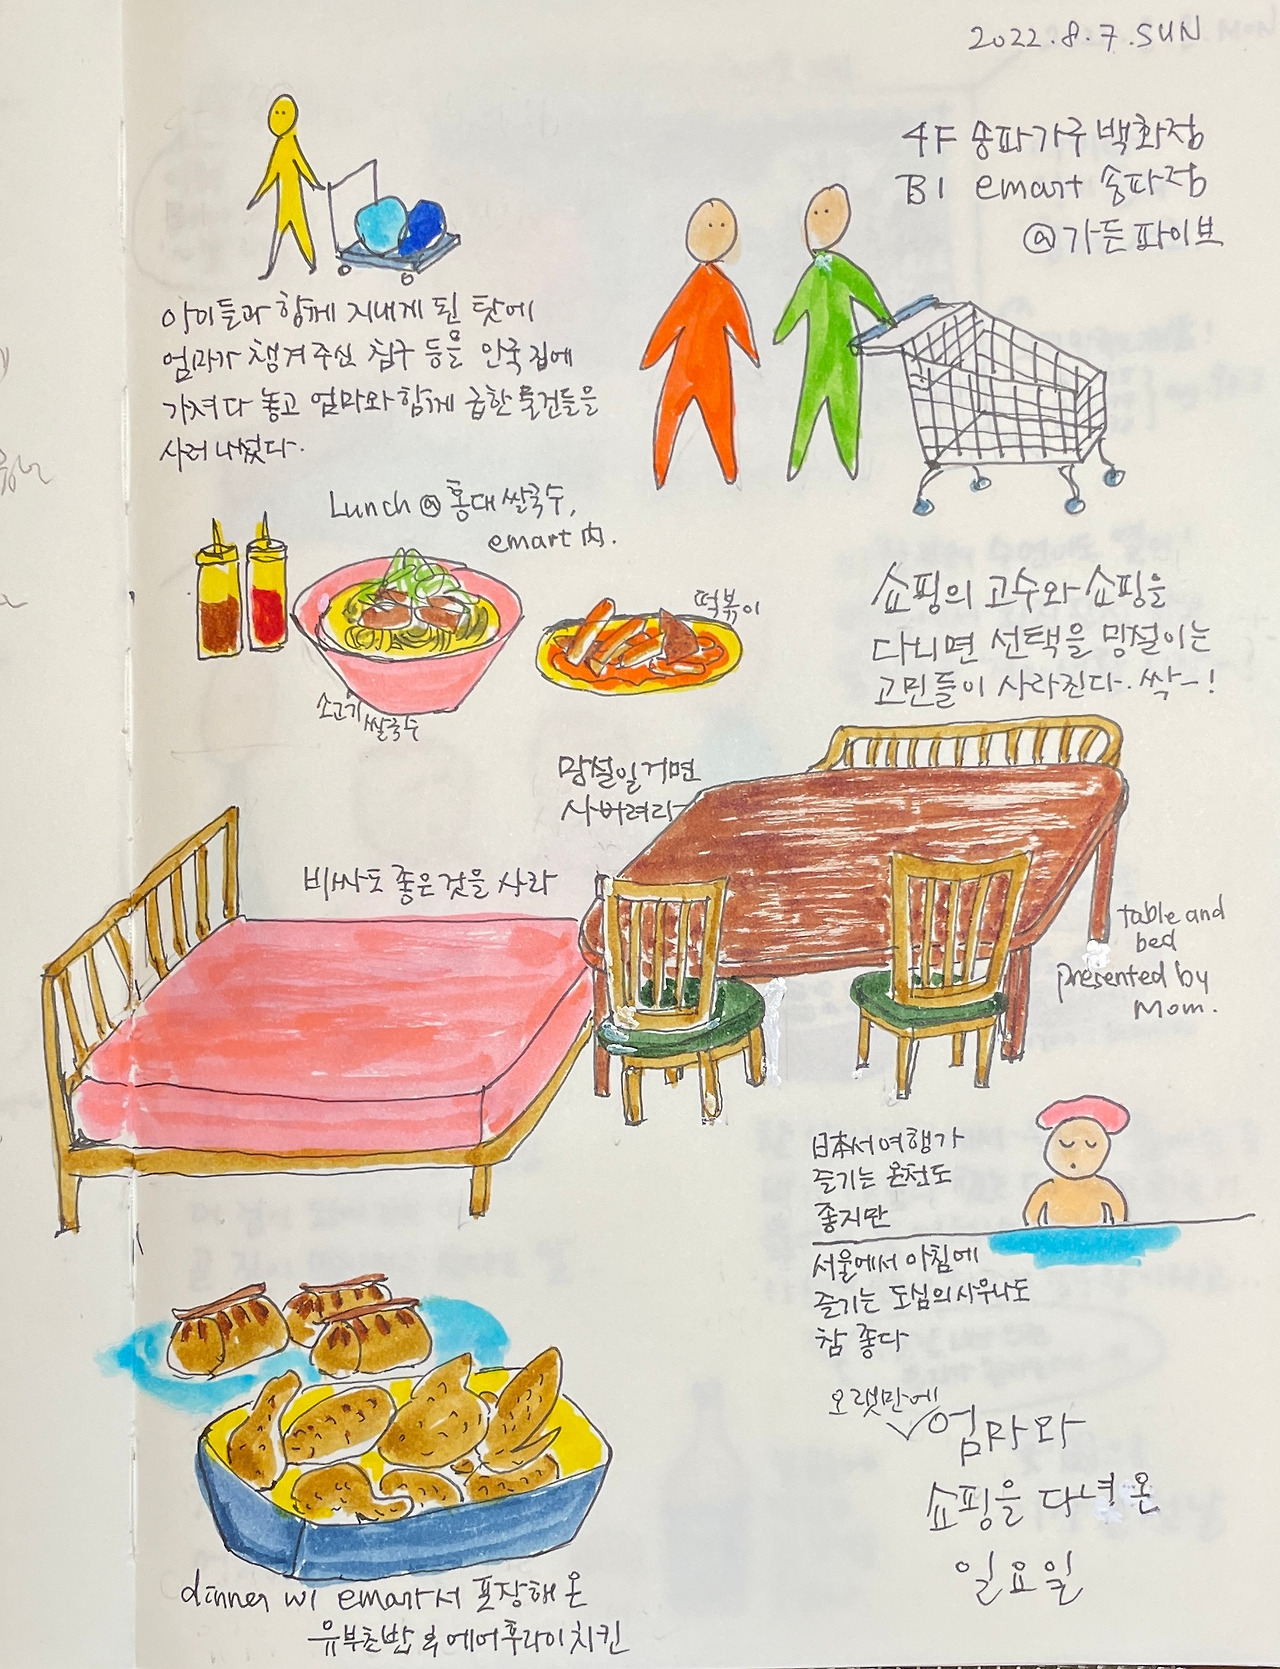 2022.8.7.SUN
4F 송파가구백화점
B1 emart 송파점
@가든파이브
아이들과 함께 지내게 된 탓에
엄마가 챙겨주신 침구 등을 안국집에
가져다 놓고 엄마와 함께 급한 물건들을
사러 나섰다.
Lunch @ 홍대쌀국수,
emart 内.
떡볶이
소고기
쌀국수
쇼핑의 고수와 쇼핑을
다니면 선택을 망설이는
고민들이 사라진다. 싹-!
망설일거면
사버려라-
비싸도 좋은 것을 사라
table and
bed
presented by
Mom.
日本서 여행가
즐기는 온천도
좋지만
서울에서 아침에
즐기는 도심의 사우나도
참 좋다
오랫만에
엄마와
쇼핑을 다녀온
일요일
dinner w/ emart서 포장해 온
유부초밥 & 에어후라이치킨